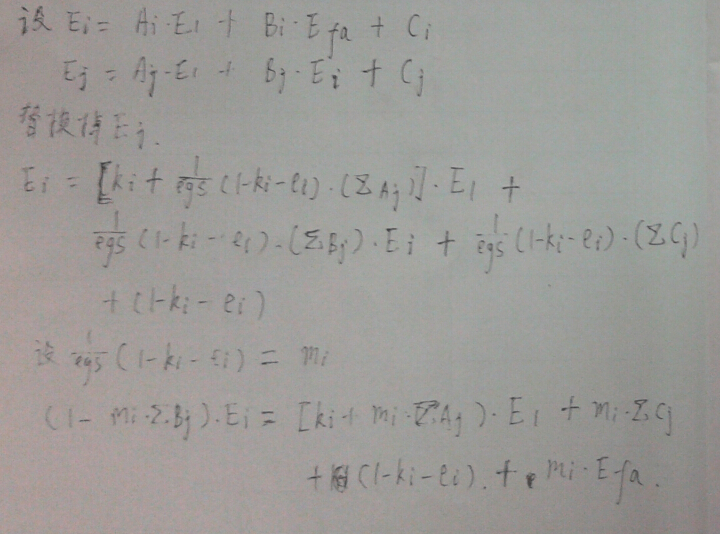 设 Ei = Ai·E1 + Bi·Efa + Ci
Ej = Aj·E1 + Bj·Ei + Cj
替换掉Ej.
Ei = [ki + 1/egs (1-ki-ei)·(ΣAj)]·E1 +
1/egs (1-ki-ei)·(ΣBj)·Ei + 1/egs (1-ki-ei)·(ΣCj)
+ (1-ki-ei)
设 1/egs (1-ki-ei) = mi
(1- mi·ΣBj)·Ei = [ki+ mi·ΣAj)·E1 + mi·ΣCj
+ (1-ki-ei). + mi·Efa.